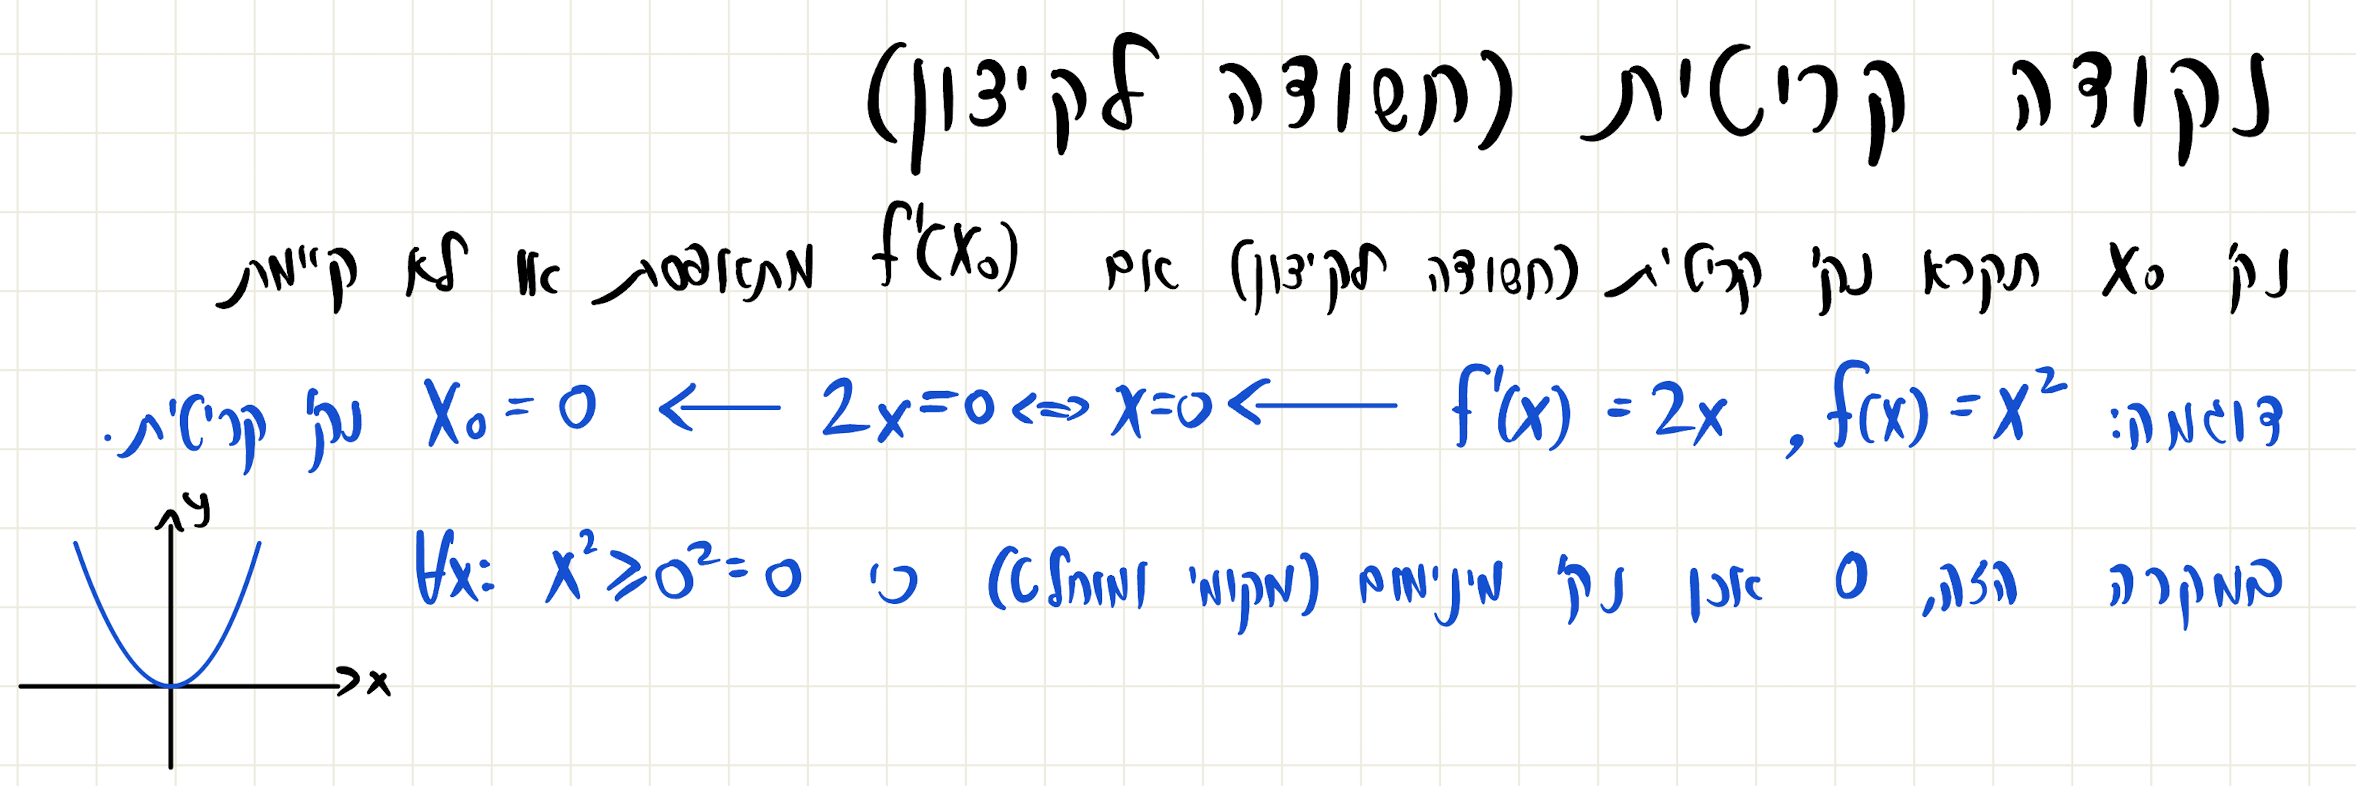 נקודה קריטית (חשודה לקיצון)
נק' x₀ תקרא נק' קריטית (חשודה לקיצון) אם f'(x₀) מתאפסת או לא קיימת
דוגמה: f(x) = x² , f'(x) = 2x ⟵ 2x=0 ⇔ x=0 ⟵ x₀ = 0 נק' קריטית.
במקרה הזה, 0 אכן נק' מינימום (מקומי ומוחלט) כי ∀x: x² ≥ 0² = 0
y
x